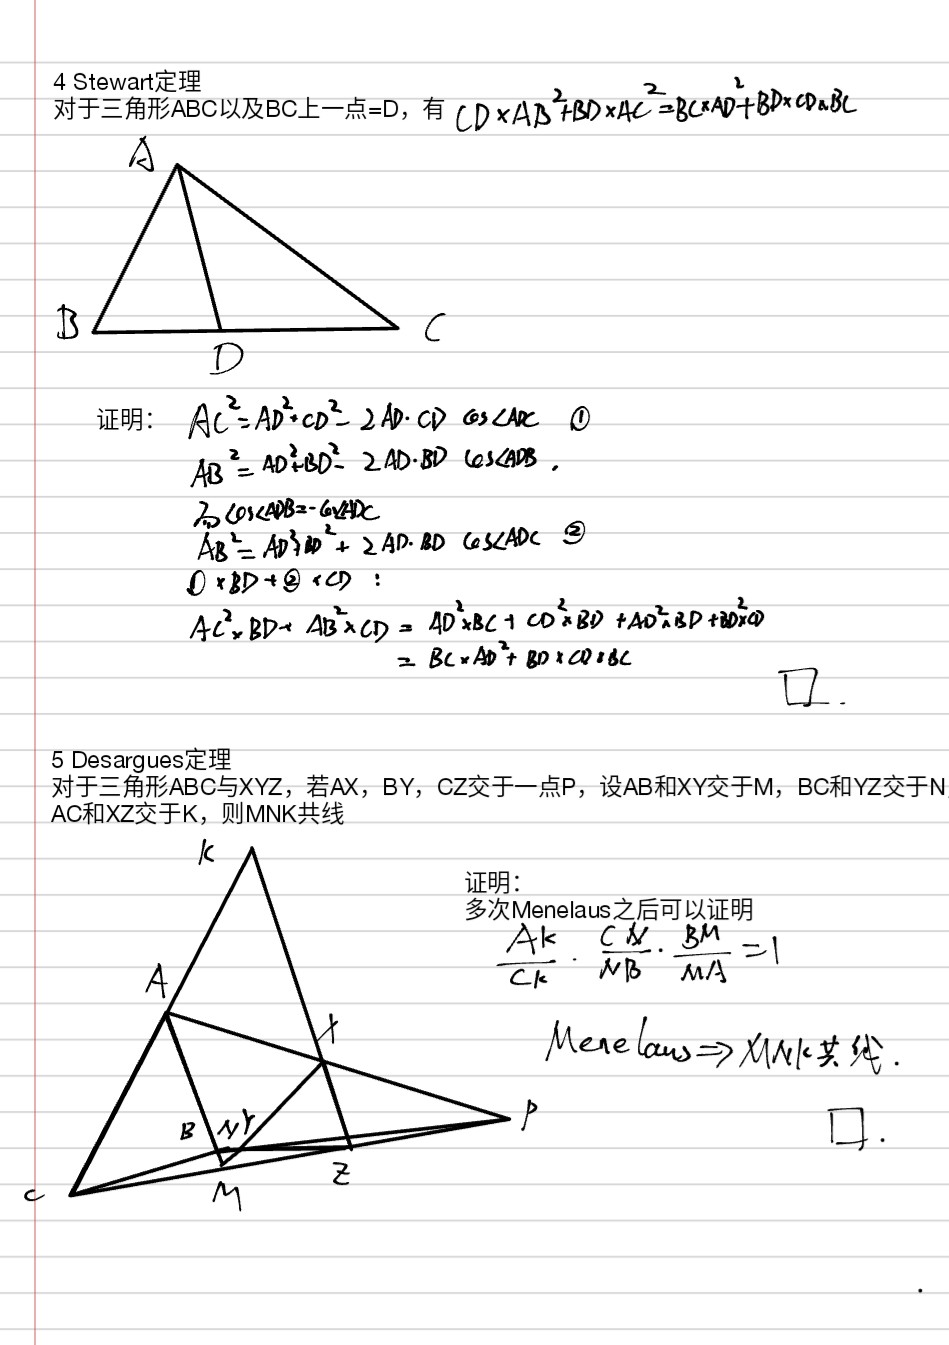 4 Stewart定理
对于三角形ABC以及BC上一点=D，有 CD×AB²+BD×AC²=BC×AD²+BD×CD×BC
A
B
C
D
证明： AC²=AD²+CD²-2AD·CD cos∠ADC ①
AB²=AD²+BD²-2AD·BD cos∠ADB.
cos∠ADB=-cos∠ADC
AB²=AD²+BD²+2AD·BD cos∠ADC ②
①×BD+②×CD：
AC²×BD+AB²×CD=AD²×BC+CD²×BD+AD²×BD+BD²×CD
=BC×AD²+BD×CD×BC
□.
5 Desargues定理
对于三角形ABC与XYZ，若AX，BY，CZ交于一点P，设AB和XY交于M，BC和YZ交于N，
AC和XZ交于K，则MNK共线
K
证明：
多次Menelaus之后可以证明
AK/CK · CN/NB · BM/MA =1
A
X
Menelaus⇒MNK共线.
P
B NY
□.
Z
C
M